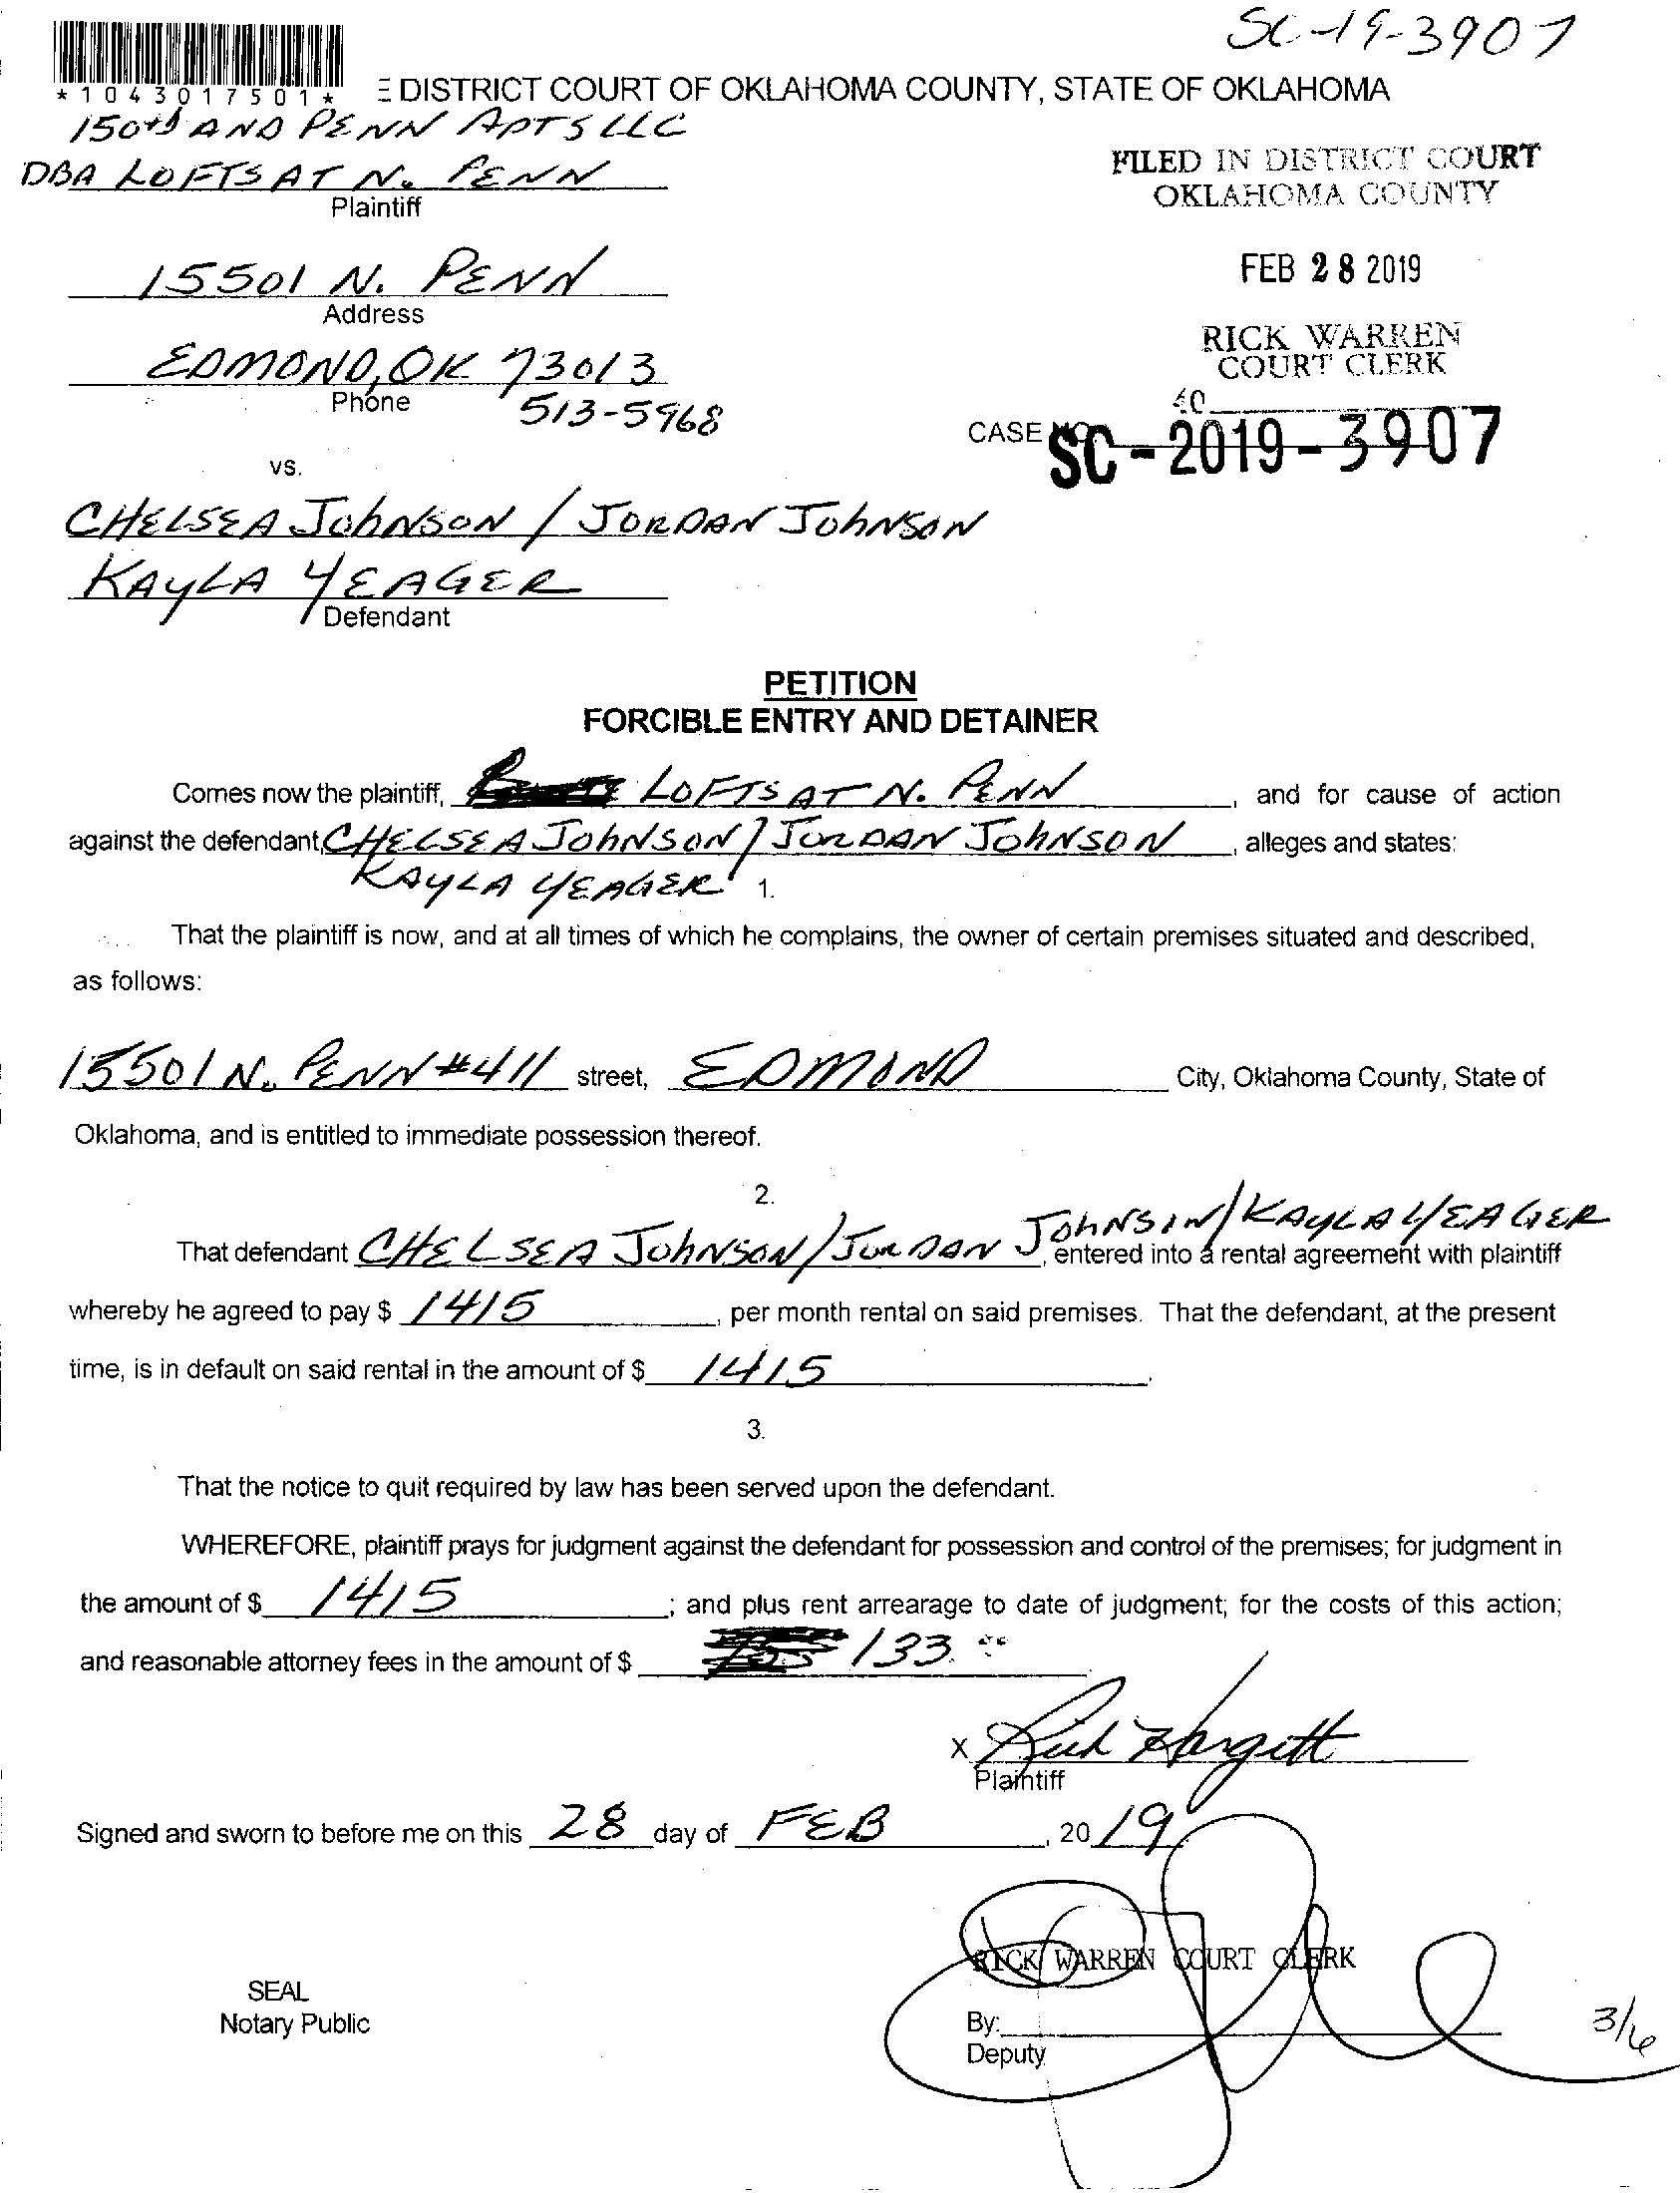 SC-19-3907
*1043017501*
E DISTRICT COURT OF OKLAHOMA COUNTY, STATE OF OKLAHOMA
150th AND PENN APTS LLC
DBA LOFTS AT N. PENN
Plaintiff
FILED IN DISTRICT COURT
OKLAHOMA COUNTY
15501 N. PENN
Address
FEB 28 2019
RICK WARREN
COURT CLERK
EDMOND, OK 73013
Phone 513-5968
40
CASE NO. SC-2019-3907
vs.
CHELSEA JOHNSON / JORDAN JOHNSON
KAYLA YEAGER
Defendant
PETITION
FORCIBLE ENTRY AND DETAINER
Comes now the plaintiff, LOFTS AT N. PENN, and for cause of action
against the defendant, CHELSEA JOHNSON / JORDAN JOHNSON, alleges and states:
KAYLA YEAGER
1.
That the plaintiff is now, and at all times of which he complains, the owner of certain premises situated and described,
as follows:
15501 N. PENN #411 street, EDMOND City, Oklahoma County, State of
Oklahoma, and is entitled to immediate possession thereof.
2.
That defendant CHELSEA JOHNSON / JORDAN JOHNSON / KAYLA YEAGER, entered into a rental agreement with plaintiff
whereby he agreed to pay $ 1415, per month rental on said premises. That the defendant, at the present
time, is in default on said rental in the amount of $ 1415.
3.
That the notice to quit required by law has been served upon the defendant.
WHEREFORE, plaintiff prays for judgment against the defendant for possession and control of the premises; for judgment in
the amount of $ 1415; and plus rent arrearage to date of judgment; for the costs of this action;
and reasonable attorney fees in the amount of $ 133.00
X Rick Hargett
Plaintiff
Signed and sworn to before me on this 28 day of FEB, 2019
RICK WARREN COURT CLERK
SEAL
Notary Public
By:
Deputy
3/6